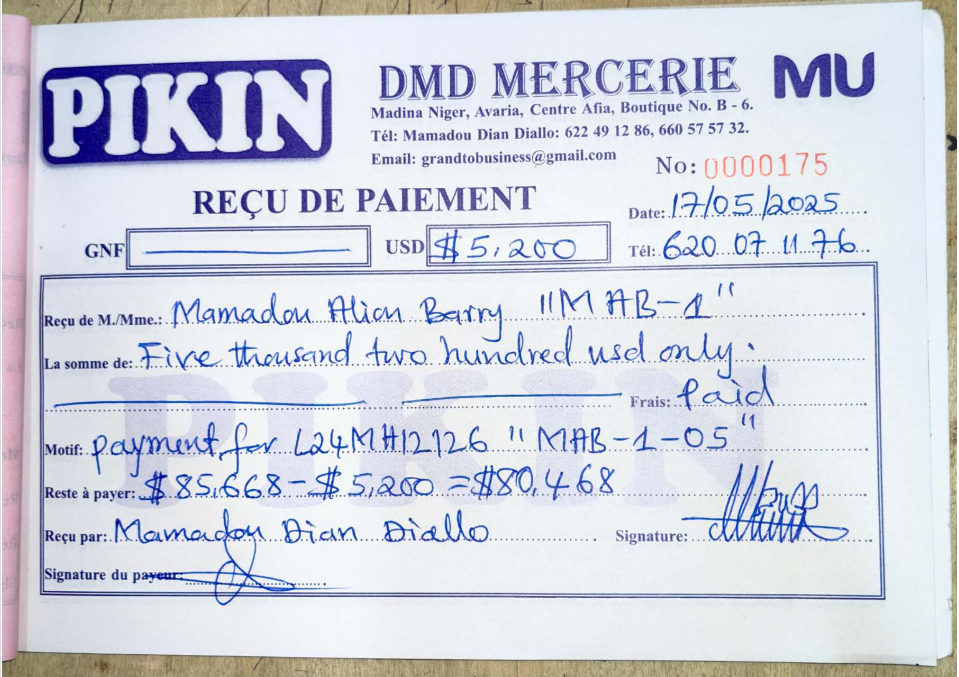 PIKIN
DMD MERCERIE MU
Madina Niger, Avaria, Centre Afia, Boutique No. B - 6.
Tél: Mamadou Dian Diallo: 622 49 12 86, 660 57 57 32.
Email: grandtobusiness@gmail.com
No: 0000175
REÇU DE PAIEMENT
Date: 17/05/2025
GNF USD $5,200 Tél: 620 07 11 76
Reçu de M./Mme.: Mamadou Alion Barry "MAB-1"
La somme de: Five thousand two hundred usd only.
Frais: Paid
PIKIN
Motif: payment for L24MH12126 "MAB-1-05"
Reste à payer: $85,668-$5,200=$80,468
Reçu par: Mamadou Dian Diallo Signature:
Signature du payeur: